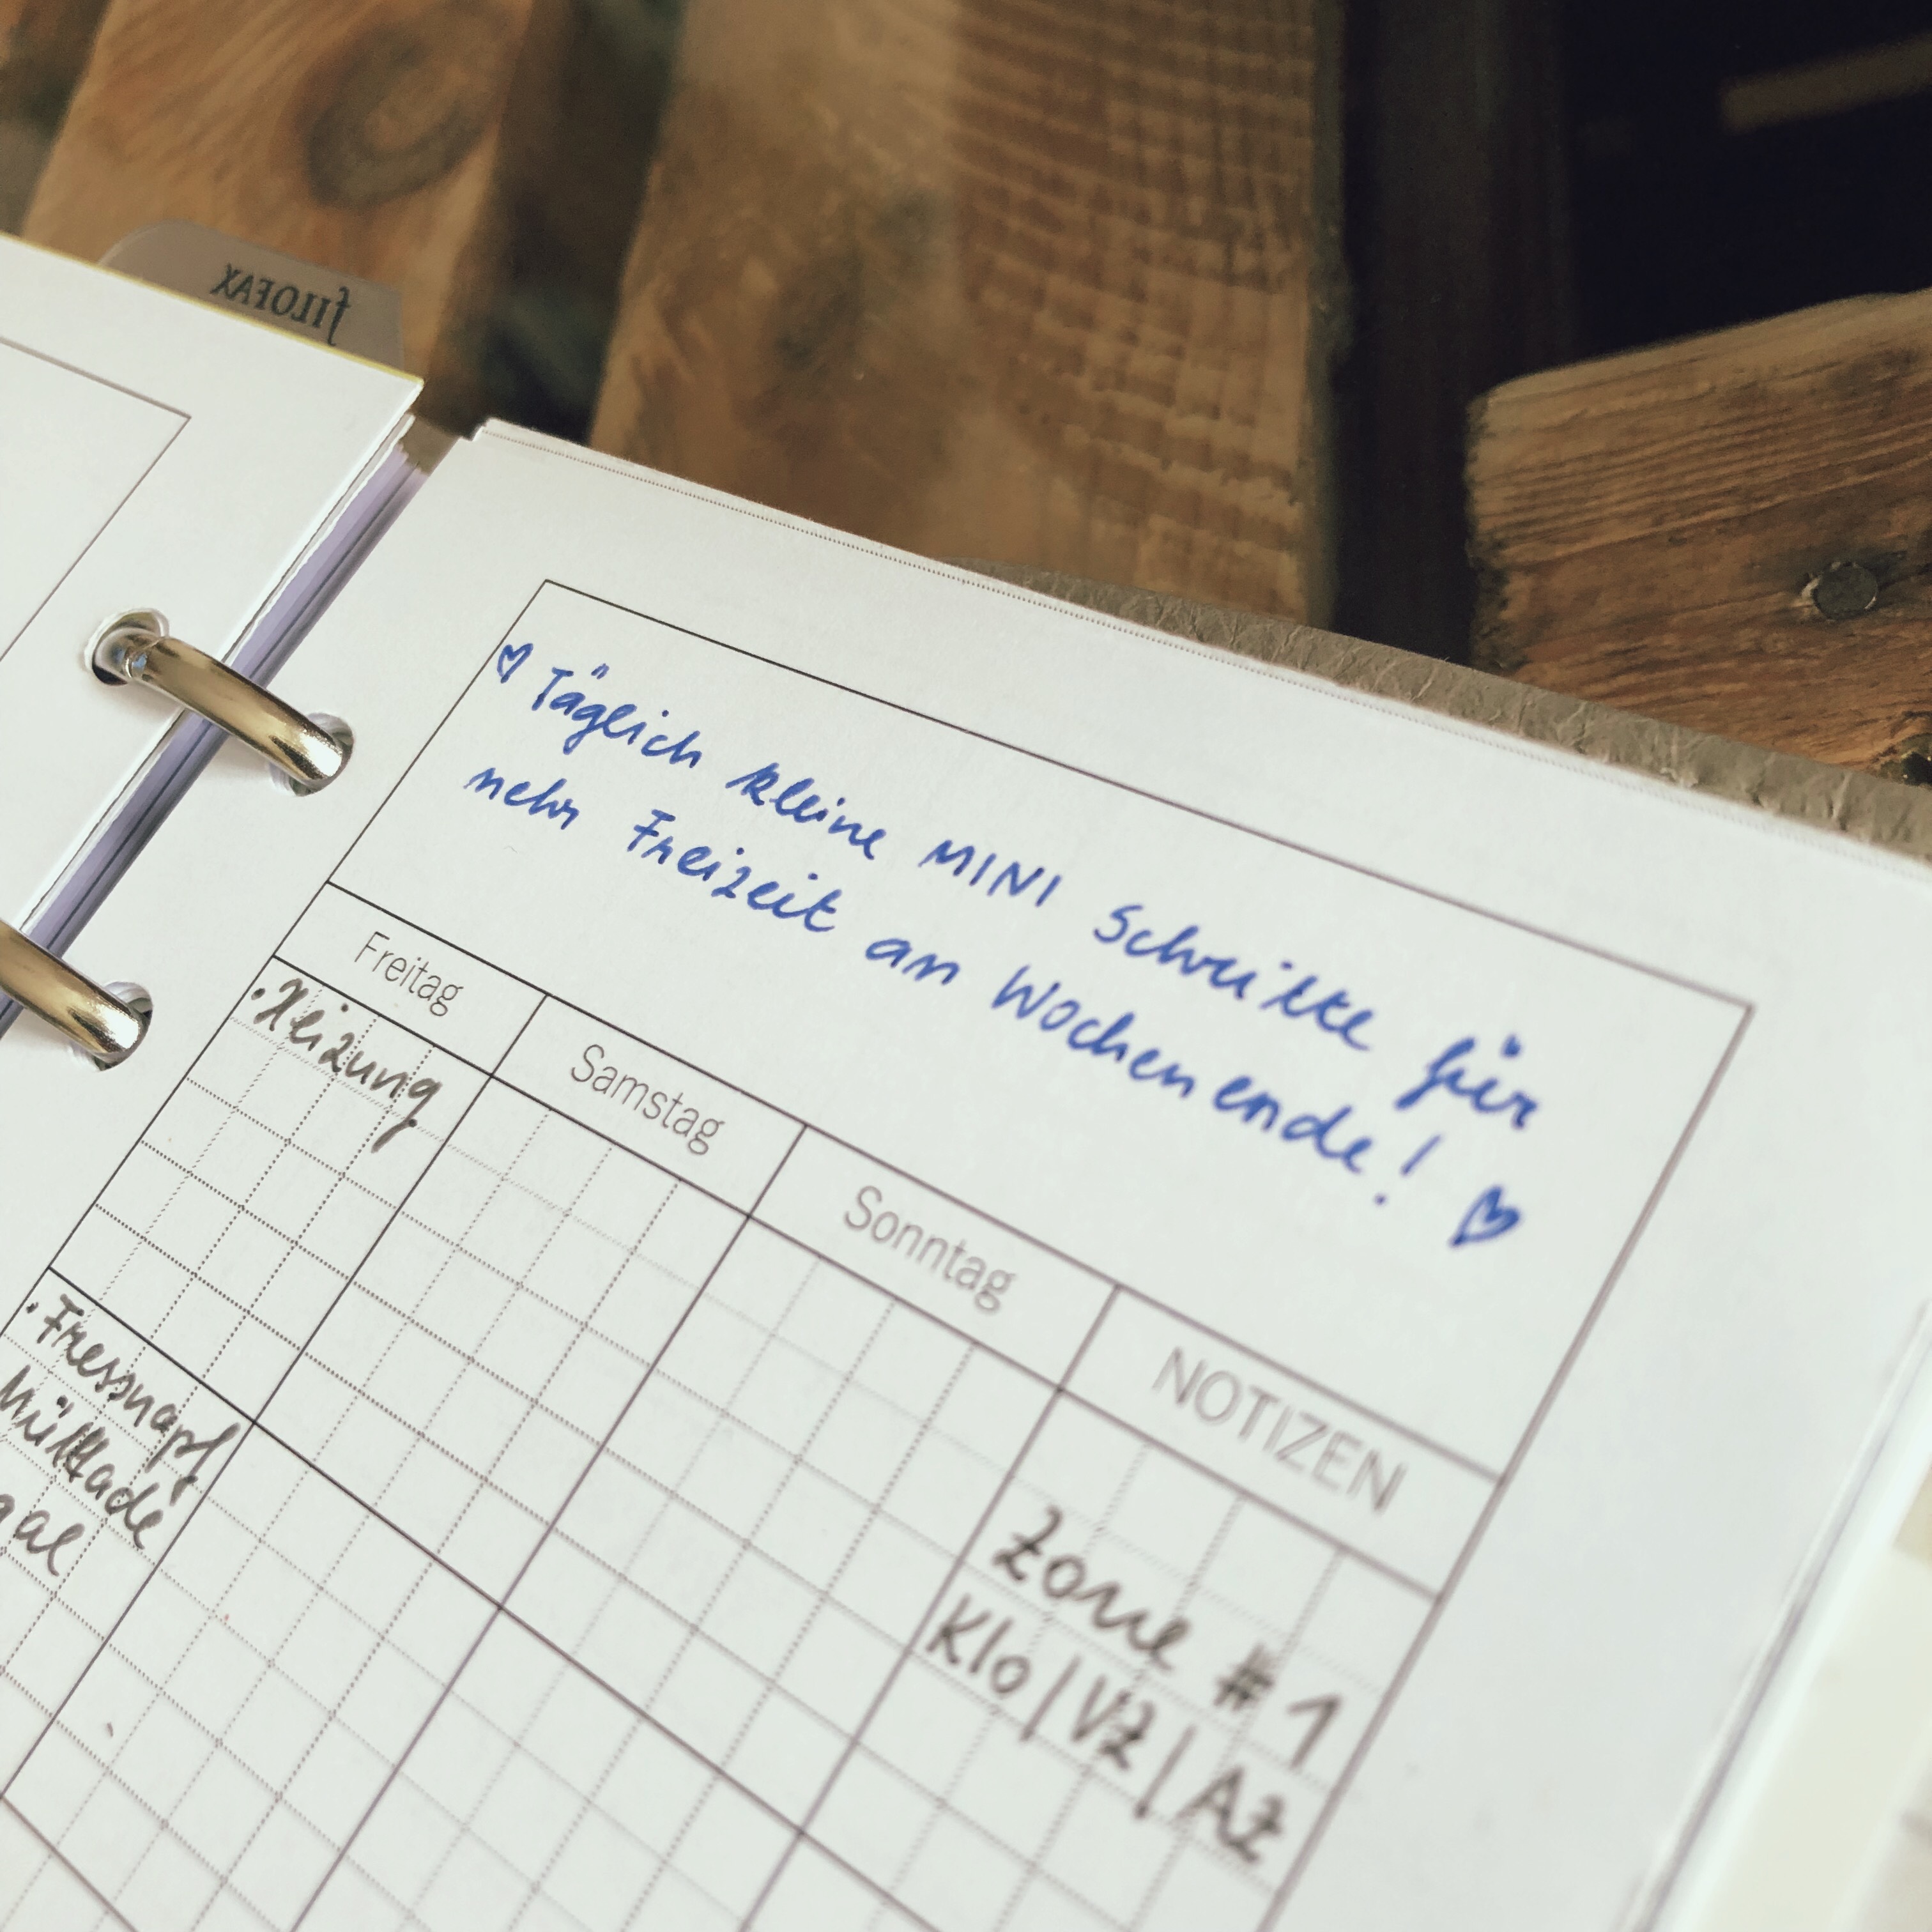 fILOFAX
♡ Täglich kleine MINI Schritte für
mehr Freizeit am Wochenende! ♡
Freitag
Samstag
Sonntag
NOTIZEN
· Heizung
· Fressnapf
Müllade
Zone #1
Klo | VZ | AZ